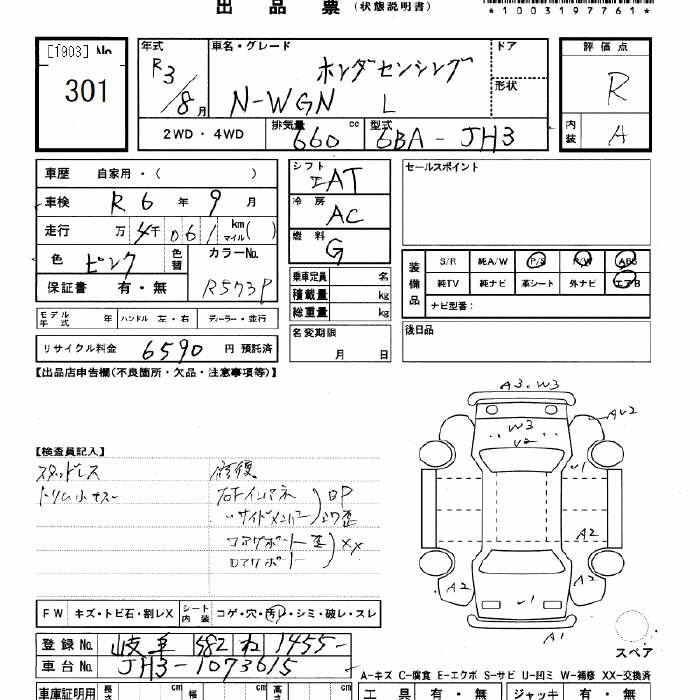 出品票 (状態説明書)
*1003197761*
[1903] No. 301
年式 R3/8月
車名・グレード ホンダセンシング
N-WGN L
ドア
形状
評価点 R
内装 A
2WD・4WD 排気量 660 cc 型式 6BA-JH3
車歴 自家用・( )
車検 R6年9月
走行 万4千061 km マイル( )
色 ピンク 色替 カラーNo. R573P
保証書 有・無
モデル年式 年 ハンドル 左・右 ディーラー・並行
リサイクル料金 6590 円 預託済
シフト AT
冷房 AC
燃料 G
乗車定員 名
積載量 kg
総重量 kg
名変期限 月 日
セールスポイント
装備品 S/R 純A/W P/S P/W ABS
純TV 純ナビ 革シート 外ナビ エアB
ナビ型番:
後日品
【出品店申告欄(不良箇所・欠品・注意事項等)】
【検査員記入】
スタッドレス 修復
A3.W3
AU2
W3
U2
U1
A2
A2
A2
U1
A1
スペア
FW キズ・トビ石・割レX シート内装 コゲ・穴・汚レ・シミ・破レ・スレ
登録No. 岐阜 582 ね 1455-
車台No. JH3-1073615
A-キズ C-腐食 E-エクボ S-サビ U-凹ミ W-補修 XX-交換済
車庫証明用 長さ cm 幅 cm 高さ cm
工具 有・無 ジャッキ 有・無